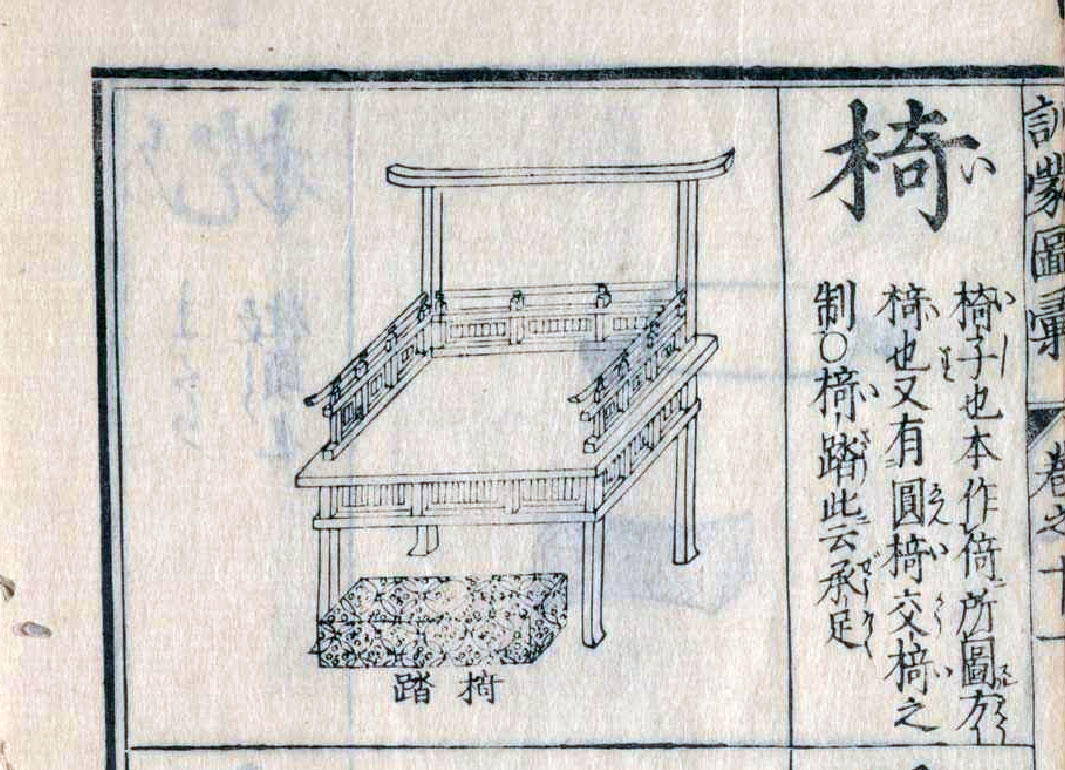 訓蒙圖彙
卷之十一
椅い
椅子也本作倚所圖方
椅也又有圓椅交椅之
制〇椅踏此云承足
椅踏